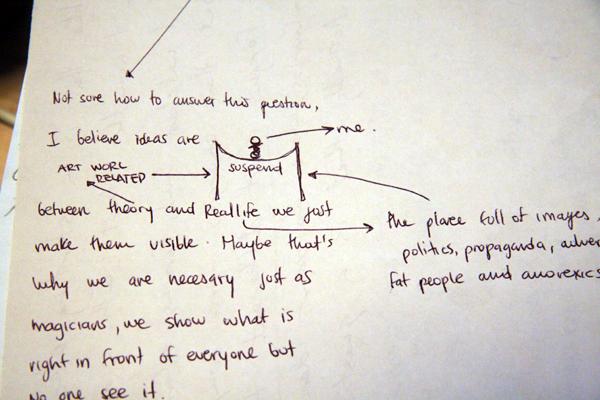 Not sure how to answer this question,
I believe ideas are suspend
me.
ART WORL
RELATED
between theory and Real life we just
make them visible. Maybe that's
why we are necesary just as
magicians, we show what is
right in front of everyone but
No one see it.
the place full of images,
politics, propaganda, adver
fat people and anorexics